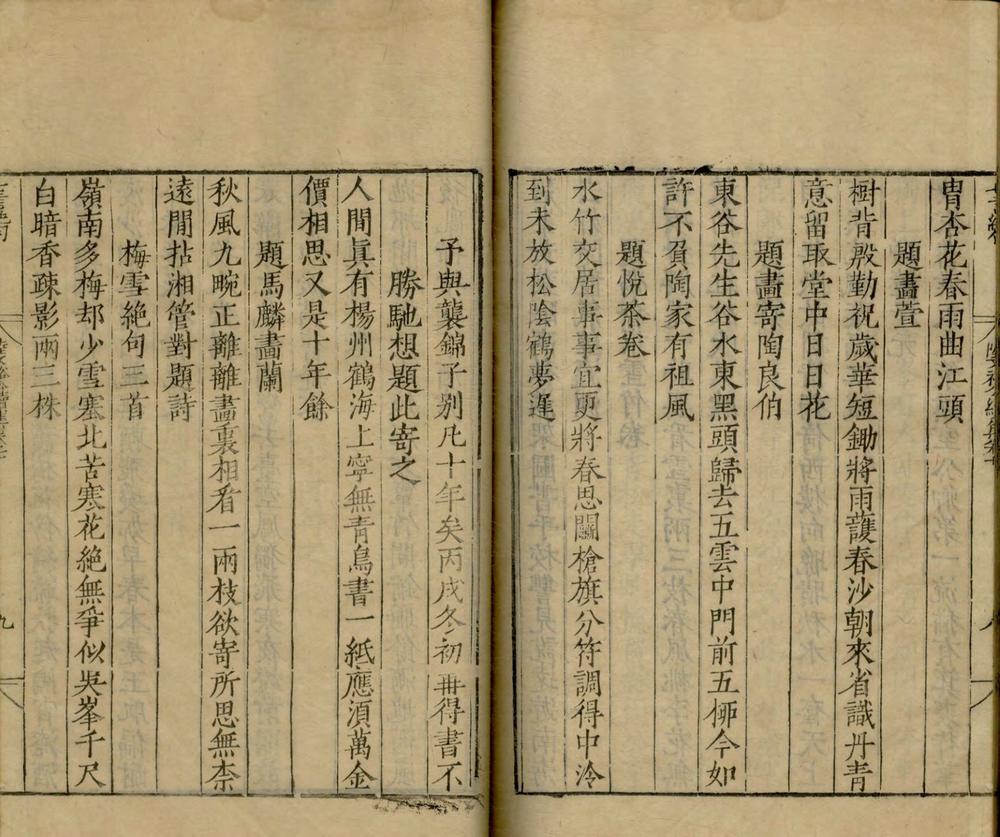 胄杏花春雨曲江頭
題畵萱
樹背殷勤祝歲華短鋤將雨護春沙朝來省識丹青
意留取堂中日日花
題畵寄陶良伯
東谷先生谷水東黑頭歸去五雲中門前五桺今如
許不負陶家有祖風
題悅茶卷
水竹交居事事宜更將春思鬭槍旗分符調得中泠
到未放松陰鶴夢遲
予與龔錦子别凡十年矣丙戌冬初冊得書不
勝馳想題此寄之
人間眞有楊州鶴海上寧無青鳥書一紙應湏萬金
價相思又是十年餘
題馬麟畵蘭
秋風九畹正離離畵裏相看一兩枝欲寄所思無柰
遠閒拈湘管對題詩
梅雪絶句三首
嶺南多梅却少雪塞北苦寒花絶無爭似吳峯千尺
白暗香疎影兩三株
九